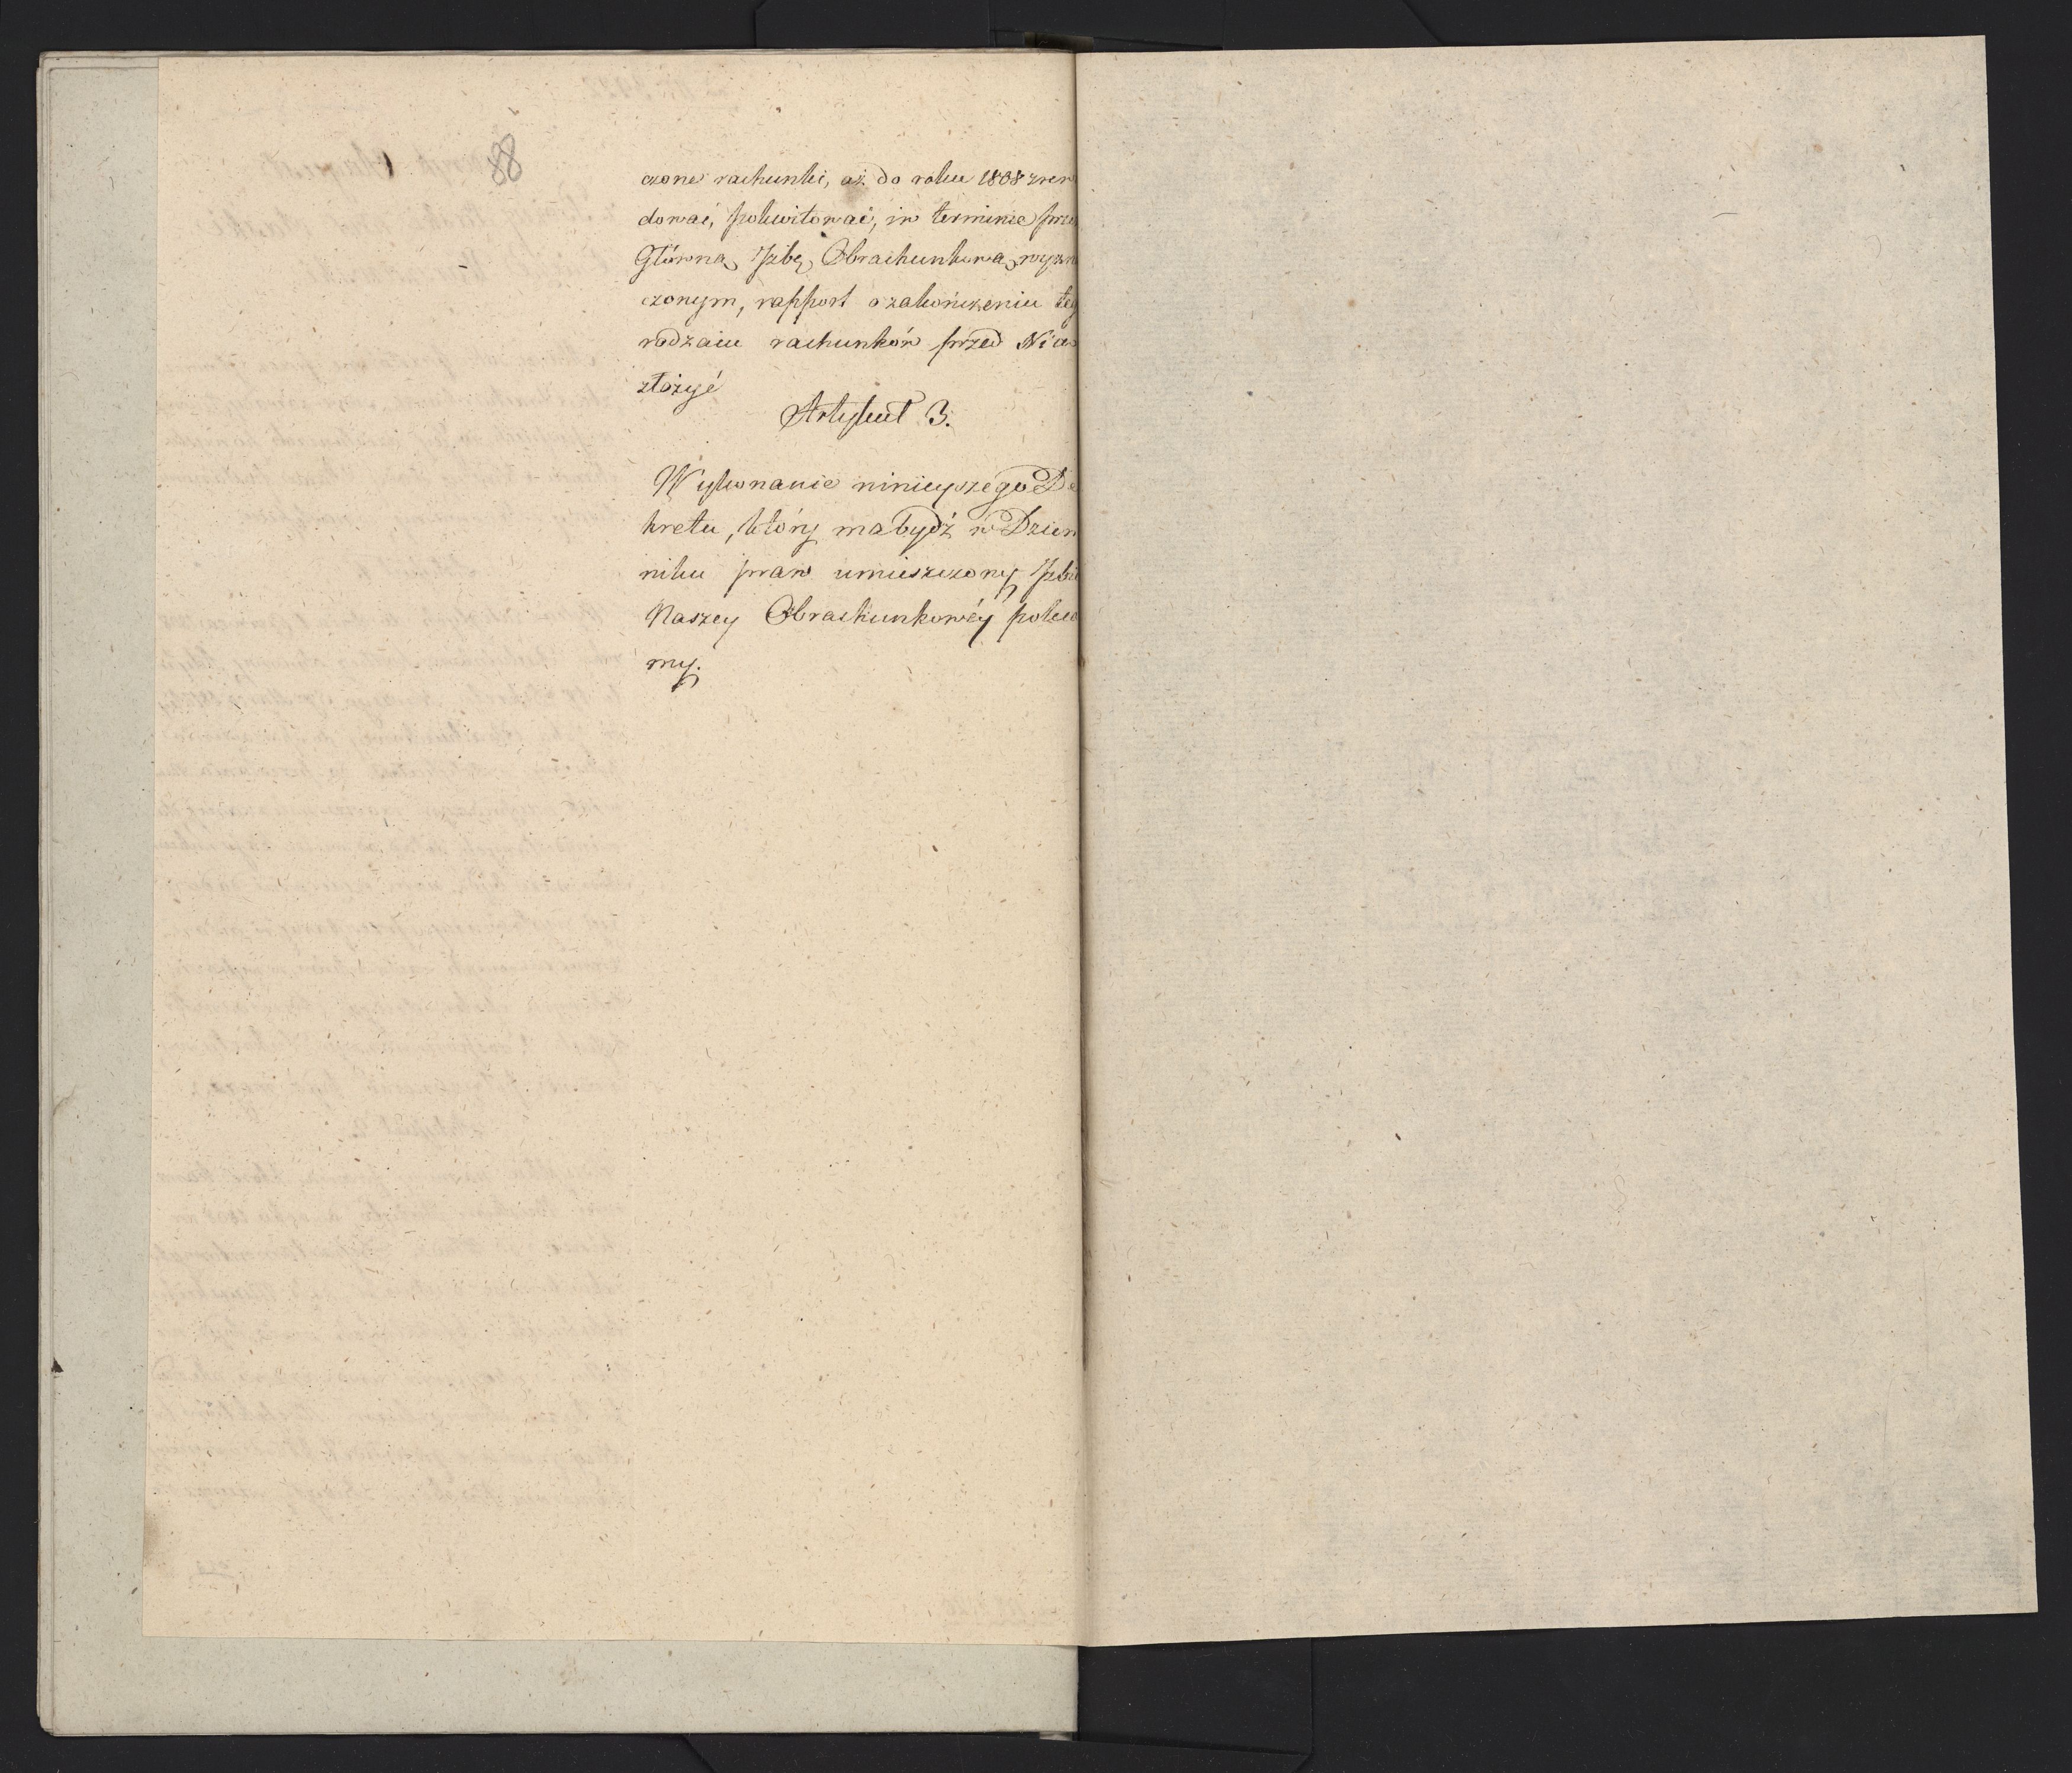 88
czone rachunki, aż do roku 1808 zrew
dować, pokwitować, i w terminie prze
Główną Jzbę Obrachunkową wyzna
czonym, rapport o zakończeniu teg
rodzaiu rachunków przed Nią
złożyć
Artykuł 3.
Wykonanie ninieyszego De
kretu, który ma bydź w Dzien
niku praw umieszczony Jzbie
Naszey Obrachunkowéy poleca
my.